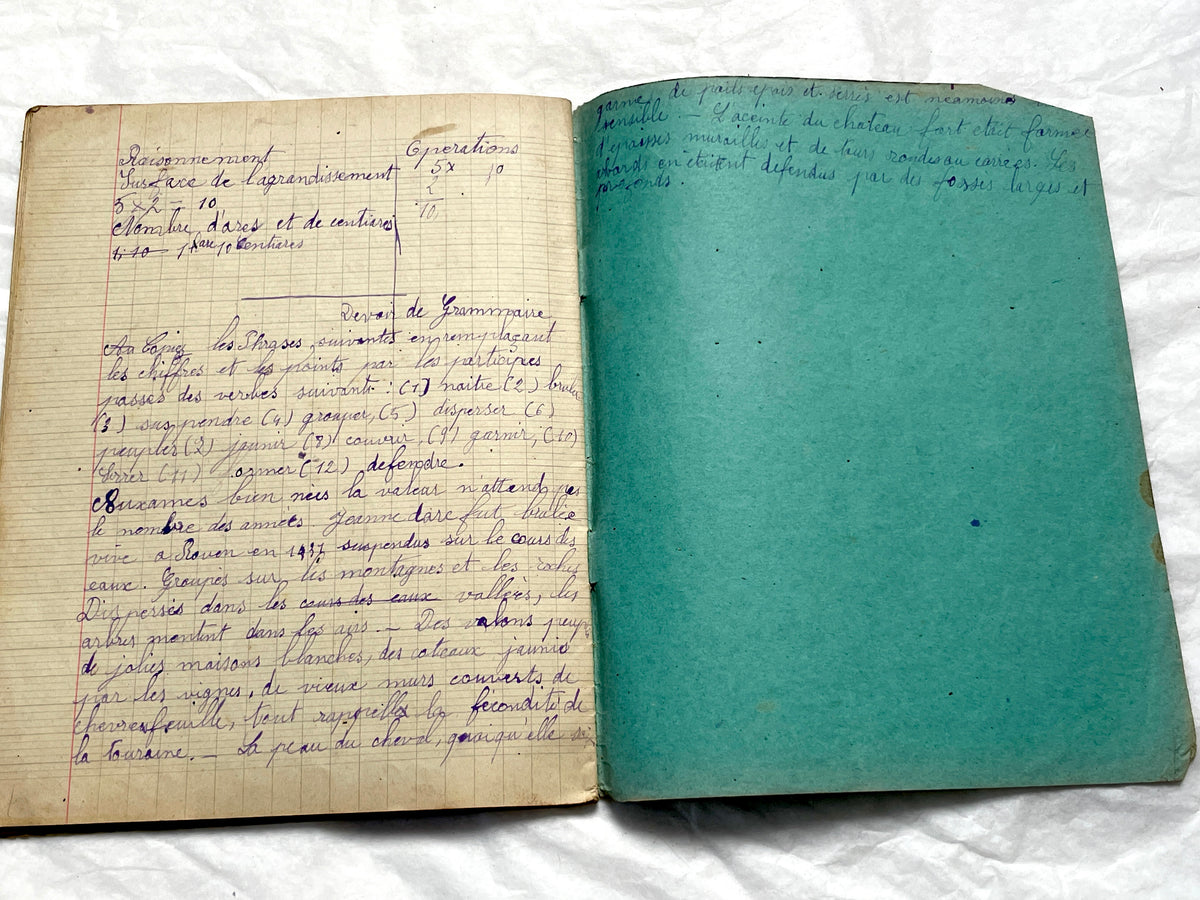 Raisonnement
Surface de lagrandissement
5 x 2 = 10
Nombre d'ares et de centiares
1 are 10 Centiares
Operations
5 x 10
2
10
Devoir de Grammaire
les Phrases suivantes en remplaçant
les chiffres et les points par les participes
passés des verbes suivants : (1) naitre (2) bruler
(3) suspendre (4) grouper, (5) disperser (6)
peupler (7) jaunir (8) couvrir, (9) garnir, (10)
serrer (11) former (12) defendre.
Auxames bien nées la valeur n'attend pas
le nombre des années. Jeanne darc fut brulée
vive a Rouen en suspendus sur le cours des
eaux. Groupés sur les montagnes et les
Dispersés dans les cours des eaux vallées, les
arbres montent dans les airs. — Des valons peup
de jolies maisons blanches, des coteaux jaunis
par les vignes, de vieux murs couverts de
chevrefeuille, tout rappelle la fécondité de
la touraine. — La peau du cheval, quoiqu'elle
garnie de poils epais et serrés est néamoins
sensible. — L'aceinte du chateau fort etait formée
d'epaisses murailles et de tours rondes ou carrées. Les
abords en étaient defendus par des fosses larges et
profonds.